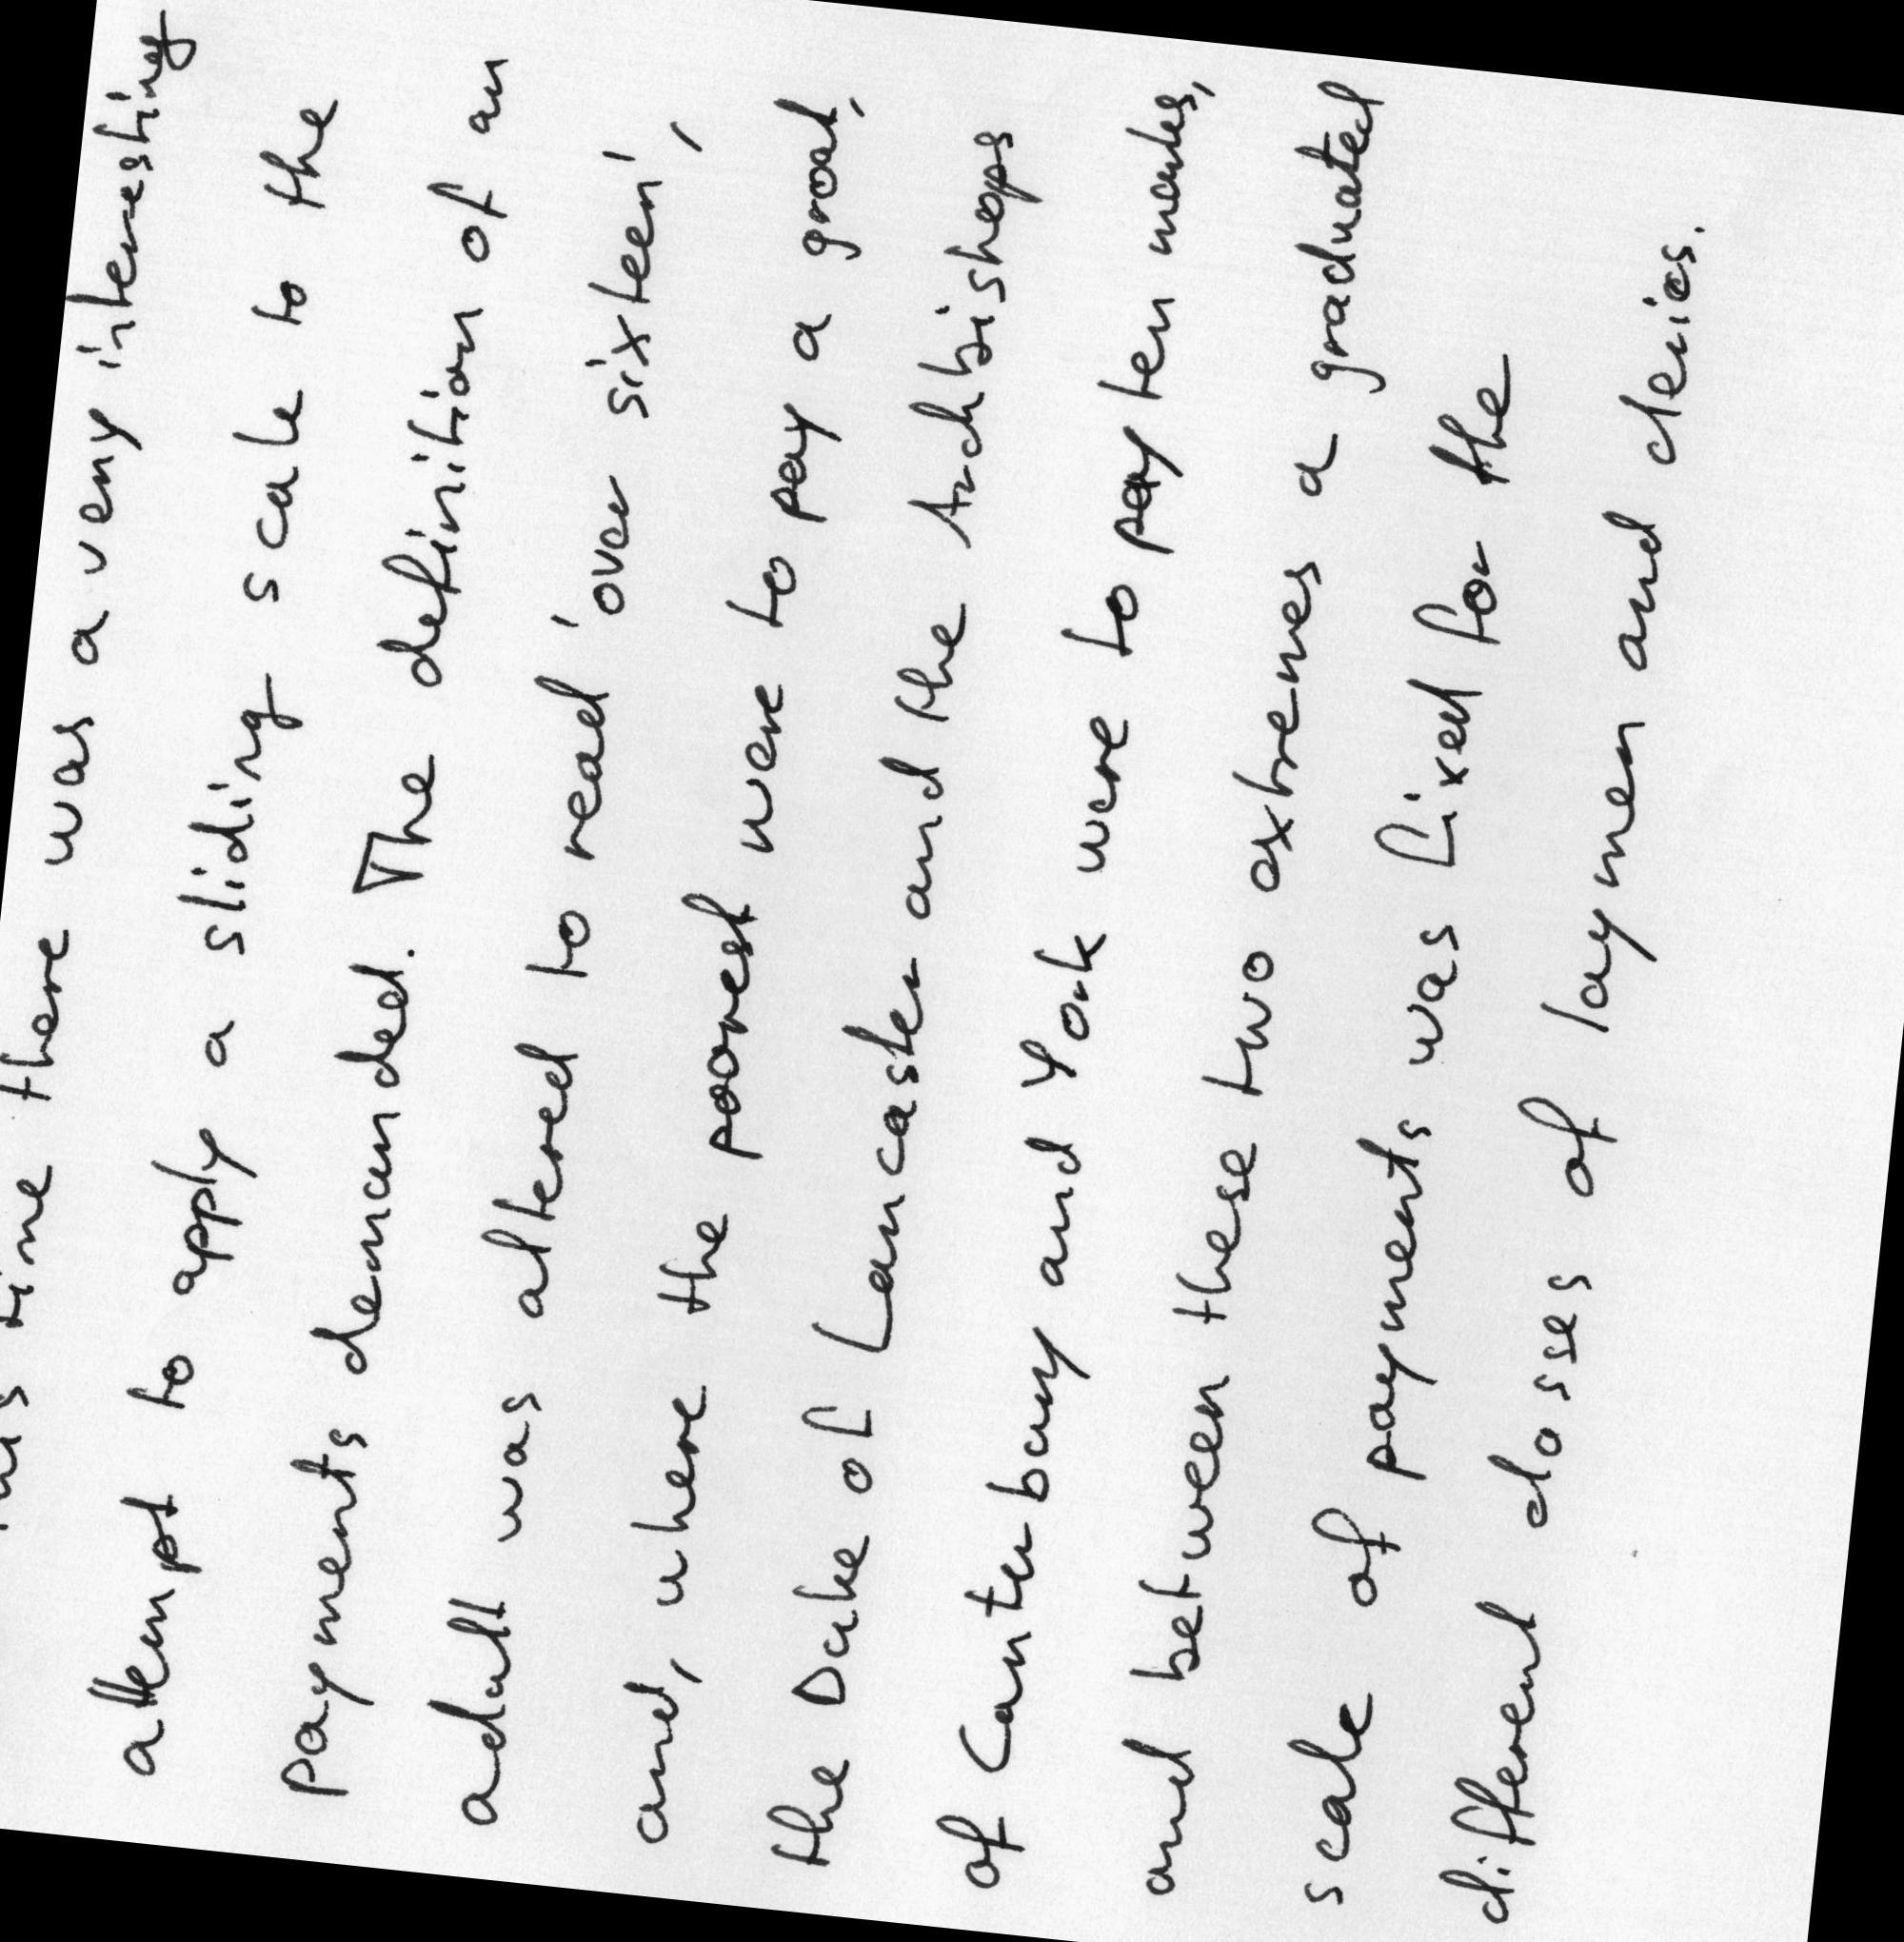 this time there was a very interesting
attempt to apply a sliding scale to the
payments demanded. The definition of an
adult was altered to read 'over sixteen',
and, where the poorest were to pay a groat,
the Duke of Lancaster and the Archbishops
of Canterbury and York were to pay ten marks,
and between these two extremes a graduated
scale of payments was fixed for the
different classes of laymen and clerics.